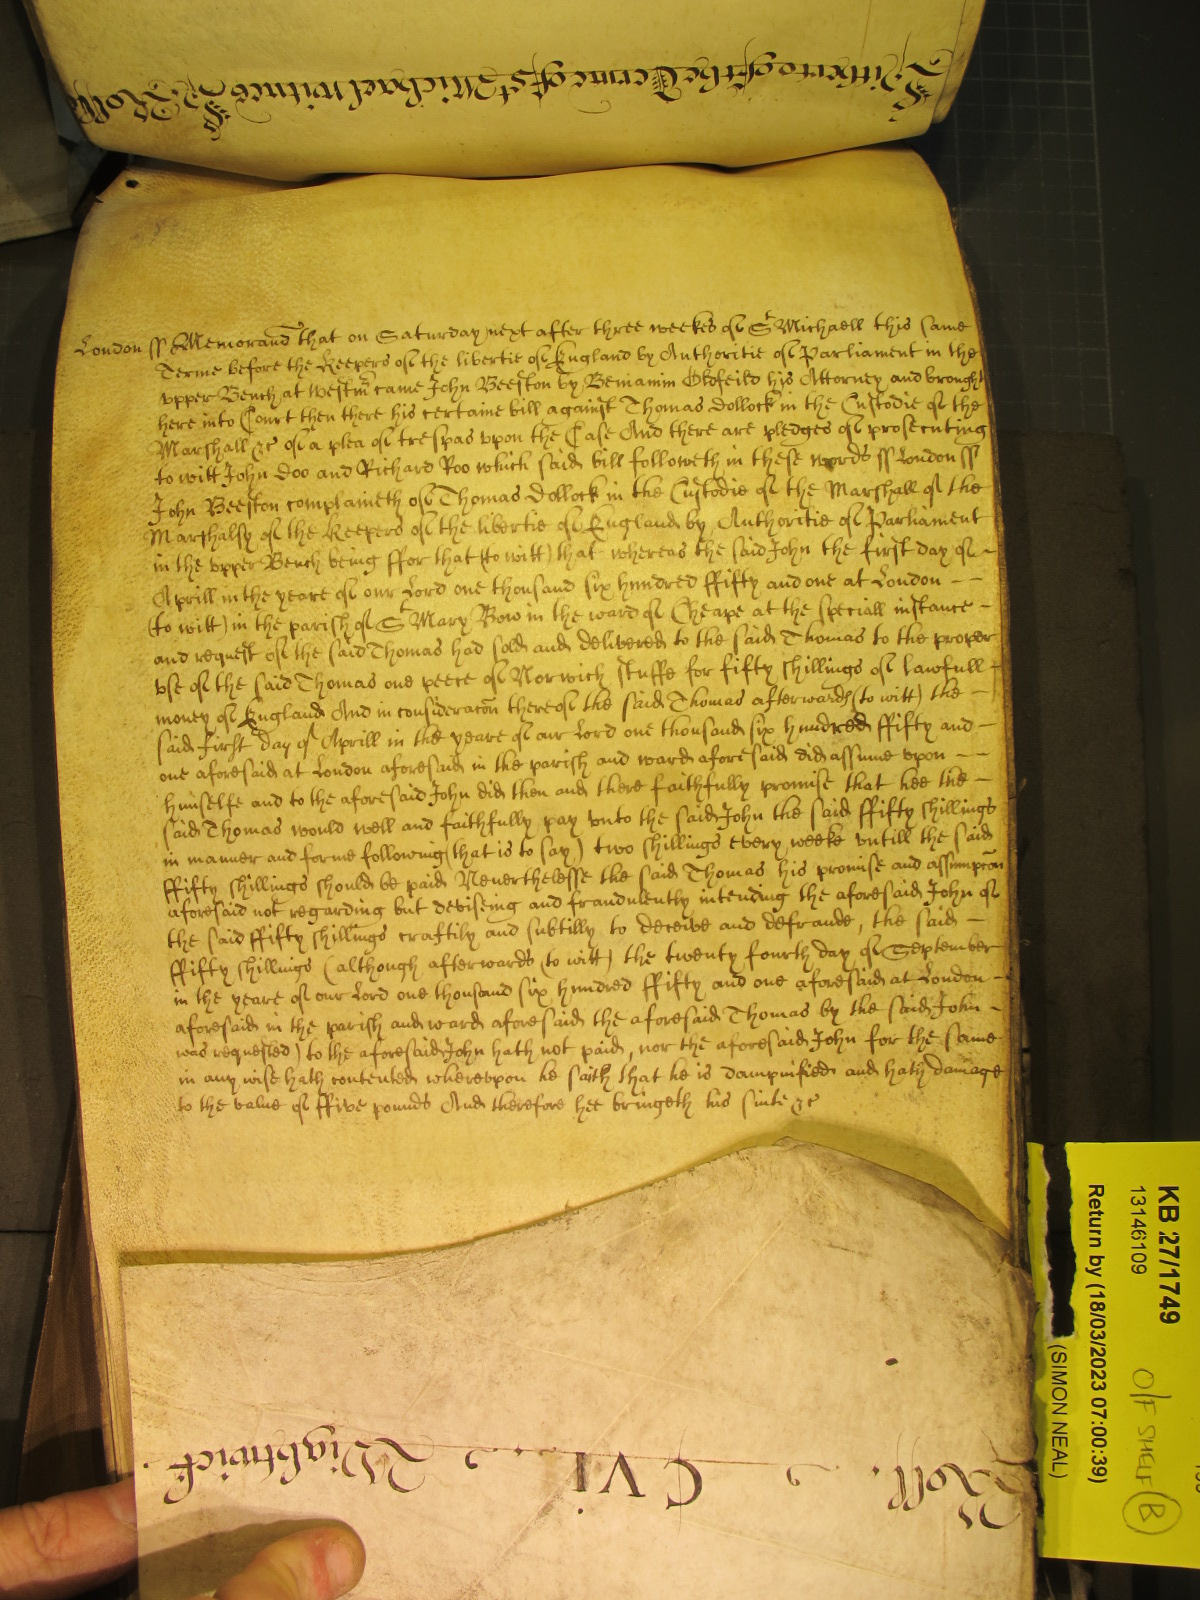 Witnes of the Terme of St Michael witnes Roll
London ss Memorand that on Saturday next after three weekes of St Michaell this same
Terme before the Keepers of the libertie of England by Authoritie of Parliament in the
vpper Bench at westm came John Beeston by Beniamin Oldfeild his Attorney and brought
here into Court then there his certaine bill against Thomas Dollock in the Custodie of the
Marshall &c of a plea of trespas vpon the Case And there are pledges of prosecuting
to witt John Doo and Richard Roo which said bill followeth in these words ss London ss
John Beeston complaineth of Thomas Dollock in the Custodie of the Marshall of the
Marshalsy of the Keepers of the libertie of England by Authoritie of Parliament
in the vpper Bench being ffor that (to witt) that whereas the said John the first day of
Aprill in the yeare of our Lord one thousand six hundred ffifty and one at London
(to witt) in the parish of St Mary Bow in the ward of Cheape at the speciall instance
and request of the said Thomas had sold and delivered to the said Thomas to the proper
vse of the said Thomas one peece of Norwich stuffe for fifty shillings of lawfull
money of England And in consideracon thereof the said Thomas afterwards (to witt) the
said first day of Aprill in the yeare of our Lord one thousand six hundred ffifty and
one aforesaid at London aforesaid in the parish and ward aforesaid did assume vpon
himselfe and to the aforesaid John did then and there faithfully promise that hee the
said Thomas would well and faithfully pay vnto the said John the said ffifty shillings
in manner and forme following (that is to say) two shillings every weeke vntill the said
ffifty shillings should be paid Neverthelesse the said Thomas his promise and assumpcon
aforesaid not regarding but deviseing and fraudulently intending the aforesaid John of
the said ffifty shillings craftily and subtilly to deceive and defraude, the said
ffifty shillings (although afterwards (to witt) the twenty fourth day of September
in the yeare of our Lord one thousand six hundred ffifty and one aforesaid at London
aforesaid in the parish and ward aforesaid the aforesaid Thomas by the said John
was requested) to the aforesaid John hath not paid, nor the aforesaid John for the same
in any wise hath contented wherevpon he saith that he is dampnified and hath damage
to the value of ffive pounds And therefore hee bringeth his suite &c
Roll. CVI. Wightwick.
KB 27/1749
13146109
Return by (18/03/2023 07:00:39)
(SIMON NEAL)
O/F SHELF B